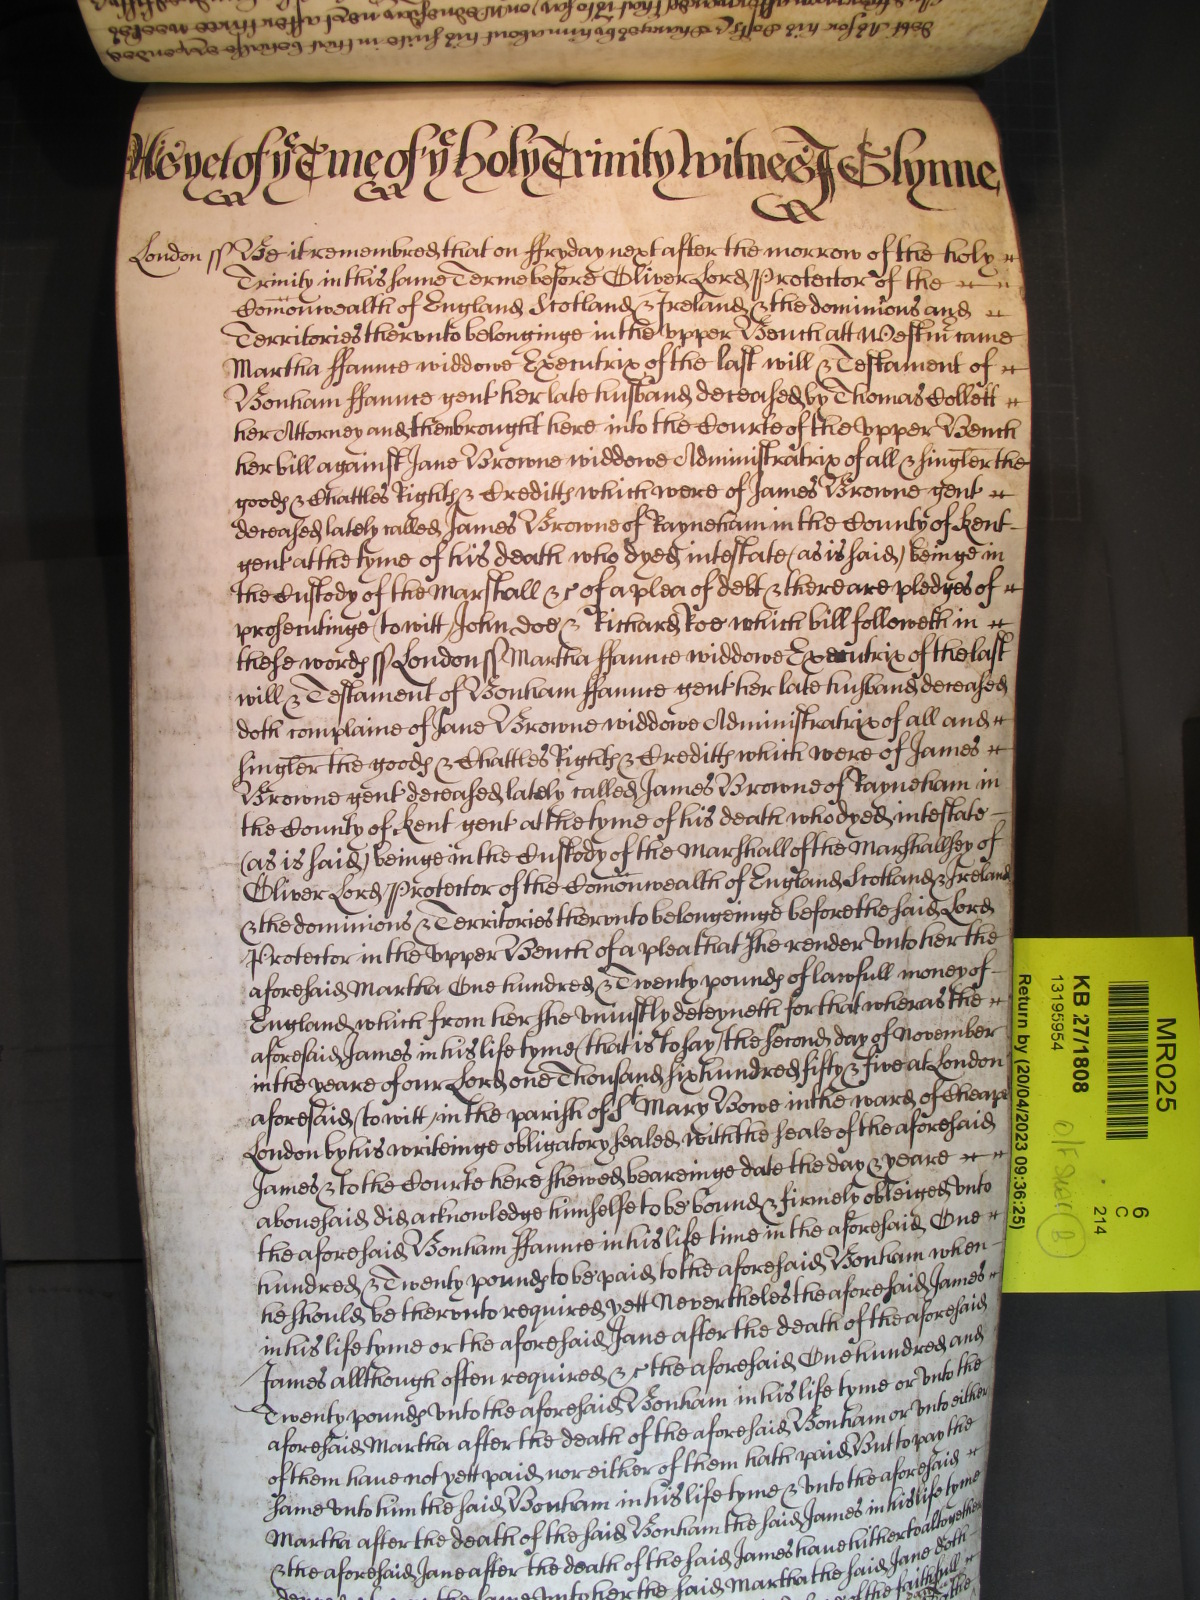 As yet of ye Tme of ye holy Trinity witnes J Glynne
London ss Be it remembred that on ffryday next after the morrow of the holy
Trinity in this same Terme before Oliver Lord Protector of the
Comonwealth of England Scotland & Ireland & the dominions and
Territories thervnto belonginge in the vpper Bench att Westm came
Martha ffannce widdowe Executrix of the last will & Testament of
Bonham ffannce gent her late husband deceased by Thomas Collett
her Attorney and then brought here into the Courte of the vpper Bench
her bill against Jane Browne widdowe Administratrix of all & singler the
goods & Chattles Rights & Creditts which were of James Browne gent
deceased lately called James Browne of Rayneham in the County of Kent
gent at the tyme of his death who dyed intestate (as is said) beinge in
the Custody of the Marshall &c of a plea of debt & there are pledges of
prosecutinge (to witt) John Doe & Richard Roe which bill followeth in
these words ss London ss Martha ffannce widdowe Executrix of the last
will & Testament of Bonham ffannce gent her late husband deceased
doth complaine of Jane Browne widdowe Administratrix of all and
singler the goods & Chattles Rights & Creditts which were of James
Browne gent deceased lately called James Browne of Rayneham in
the County of Kent gent at the tyme of his death who dyed intestate
(as is said) beinge in the Custody of the Marshall of the Marshallsey of
Oliver Lord Protector of the Comonwealth of England Scotland & Ireland
& the dominions & Territories thervnto belongeinge before the said Lord
Protector in the vpper Bench of a plea that she render vnto her the
aforesaid Martha One hundred & Twenty pounds of lawfull money of
England which from her she vniustly deteyneth for that wheras the
aforesaid James in his life tyme (that is to say) the second day of November
in the yeare of our Lord one Thousand six hundred fifty & five at London
aforesaid (to witt) in the parish of St Mary Bowe in the ward of Cheape
London by his writeinge obligatory sealed with the seale of the aforesaid
James & to the Courte here shewed beareinge date the day & yeare
abouesaid did acknowledge himselfe to be bound & firmely obleiged vnto
the aforesaid Bonham ffannce in his life time in the aforesaid One
hundred & Twenty pounds to be paid to the aforesaid Bonham when
he should be thervnto required yett Nevertheles the aforesaid James
in his life tyme or the aforesaid Jane after the death of the aforesaid
James allthough often required &c the aforesaid One hundred and
Twenty pounds vnto the aforesaid Bonham in his life tyme or vnto the
aforesaid Martha after the death of the aforesaid Bonham or vnto either
of them haue not yett paid nor either of them hath paid But to pay the
same vnto him the said Bonham in his life tyme & vnto the aforesaid
Martha after the death of the said Bonham the said James in his life tyme
& the aforesaid Jane after the death of the said James haue hitherto altogether
the same vnto her the said Martha the said Jane doth
of the faithfull
MR025
6
C
214
KB 27/1808
13195954
Return by (20/04/2023 09:36:25)